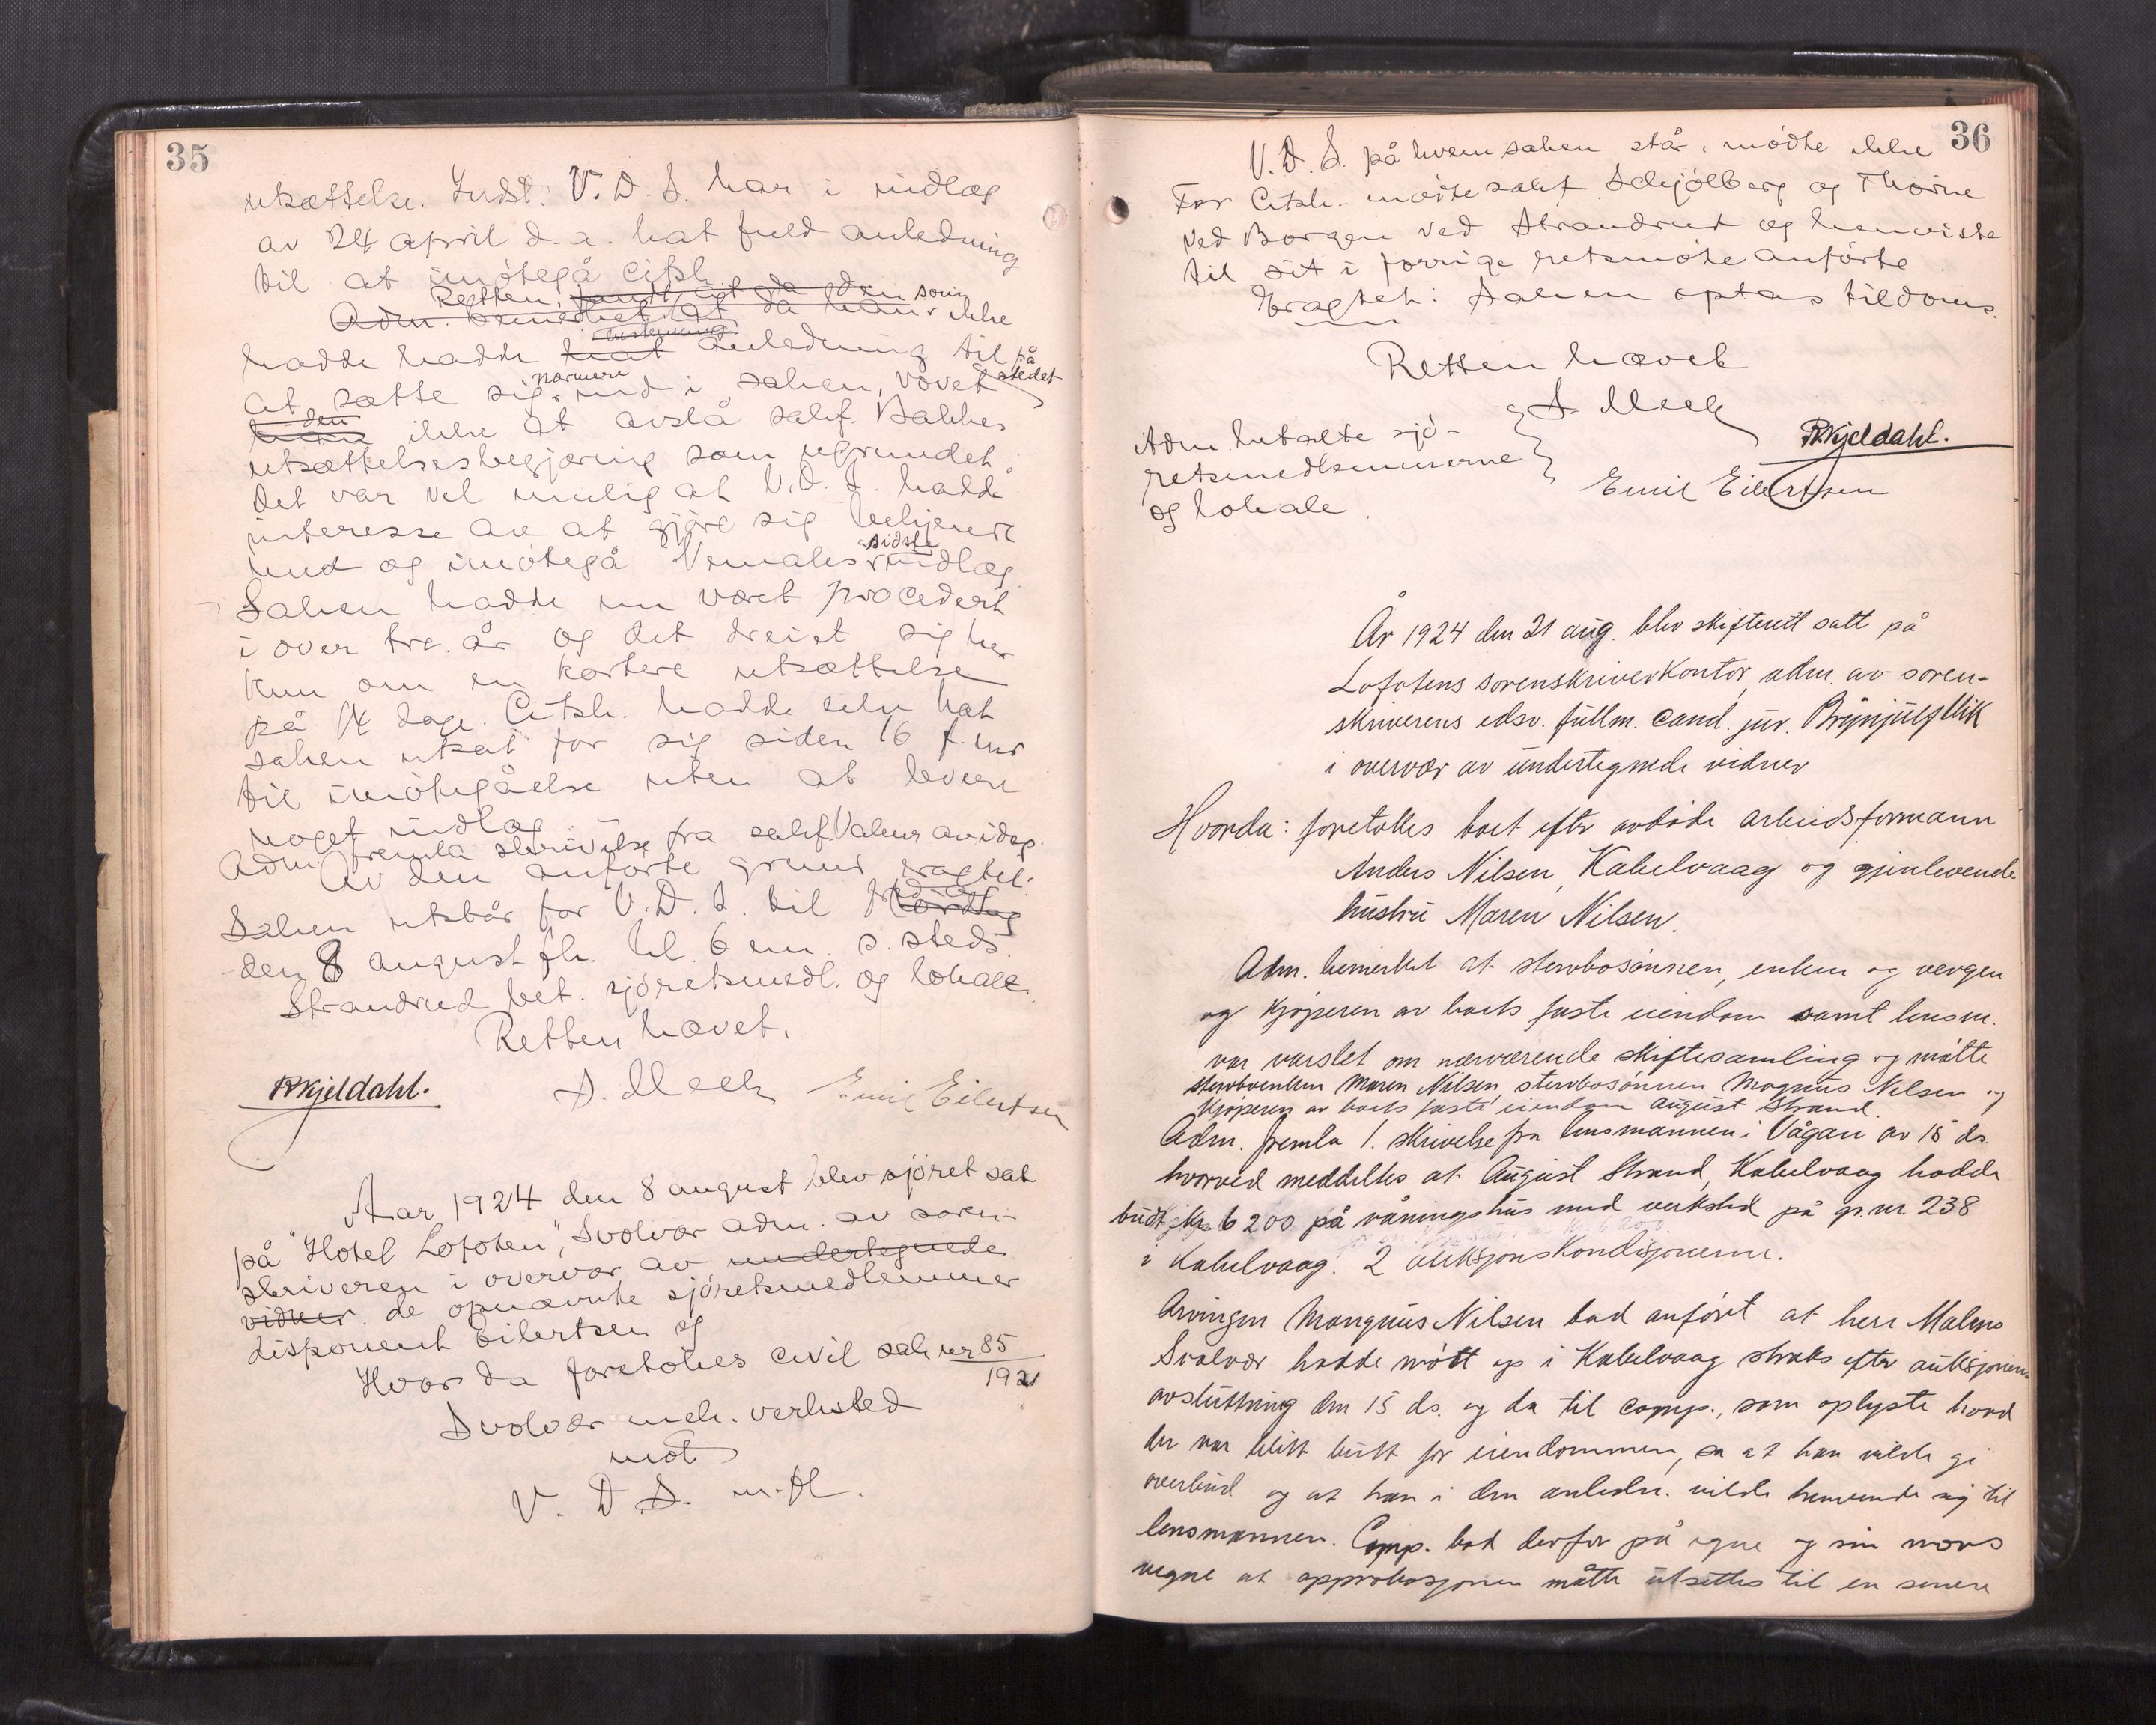 35
utsættelse. Indst. V. D. S. har i indlæg
av 24 april d. a. hat fuld anledning
til at imøtegå citsk.
Retten fandt at da den som
Adm. bemerket at da han ikke
hadde hadde hat anledning til på stedet
at sætte sig nærmere ind i saken, vovet
han den ikke at avslå sakf. Bakkes
utsættelsesbegjæring som ugrundet.
Det var vel mulig at V. D. S. hadde
interesse av at gjøre sig bekjendt
med og imøtegå sidste indlæg.
Saken hadde nu været procedert
i over tre år og det dreiet sig her
kun om en kortere utsættelse
på 14 dage. Citsk. hadde selv hat
saken utsat for sig siden 16 f. mr
til imøtegåelse uten at levere
noget indlæg.
Adm. fremla skrivelse fra sakf. Valeur av idag.
Av den anførte grund eragtet:
Saken utstår for V. D. S. til fredag lørdag
den 8 august fk. kl. 6 em. s. steds.
Strandrud bet. sjøretsmedl. og lokale.
Retten hævet.
RKjeldahl. A. Meek Emil Eilertsen
Aar 1924 den 8 august blev sjøret sat
på "Hotel Lofoten", Svolvær adm. av soren-
skriveren i overvær av undertegnede
vidner de opnævnte sjøretsmedlemmer
disponent Eilertsen og
Hvor da foretokes civil sak nr 85
1921
Svolvær mek. verksted
mot
V. D. S. m. fl.
36
V. D. S. på hvem saken står, mødte ikke
For Citsk. mødte sakf. Schjølberg og Thorne
ved Borgen ved Strandrud og henviste
til sit i forrige retsmøte anførte
Eragtet: Saken optas til doms.
Retten hævet
A. Meek
Adm. betalte sjø-
retsmedlemmerne
og lokale.
RKjeldahl.
Emil Eilertsen
År 1924 den 21 aug. blev skifterett satt på
Lofotens sorenskriverkontor, adm. av soren-
skriverens edsv. fullm. cand. jur. Brynjulf Mik
i overvær av undertegnede vidner
Hvorda: foretokes boet efter avdøde arbeidsformann
Anders Nilsen, Kabelvaag og gjenlevende
hustru Maren Nilsen.
Adm. bemerket at stervbosønnen, enken og vergen
og kjøperen av boets faste eiendom samt lensm.
var varslet om nærværende skiftesamling og møtte
stervboenken Maren Nilsen, stervbosønnen Magnus Nilsen og
kjøperen av boets faste eiendom August Strand.
Adm. fremla 1. skrivelse fra lensmannen i Vågan av 15 ds.
hvorved meddeltes at August Strand, Kabelvaag hadde
budt kr. 6200 på våningshus med verksted på gr. nr. 238
i Kabelvaag. 2 auksjonskondisjonerne.
Arvingen Mangnus Nilsen bad anført at herr Malmo
Svolvær hadde møtt op i Kabelvaag straks efter auksjonens
avslutning den 15 ds. og da til comp., som oplyste hvad
der var blitt budt for eiendommen, sa at han vilde gi
overbud og at han i den anledn. vilde henvende sig til
lensmannen. Comp. bad derfor på egne og sin mors
vegne at approbasjonen måtte utsettes til en senere